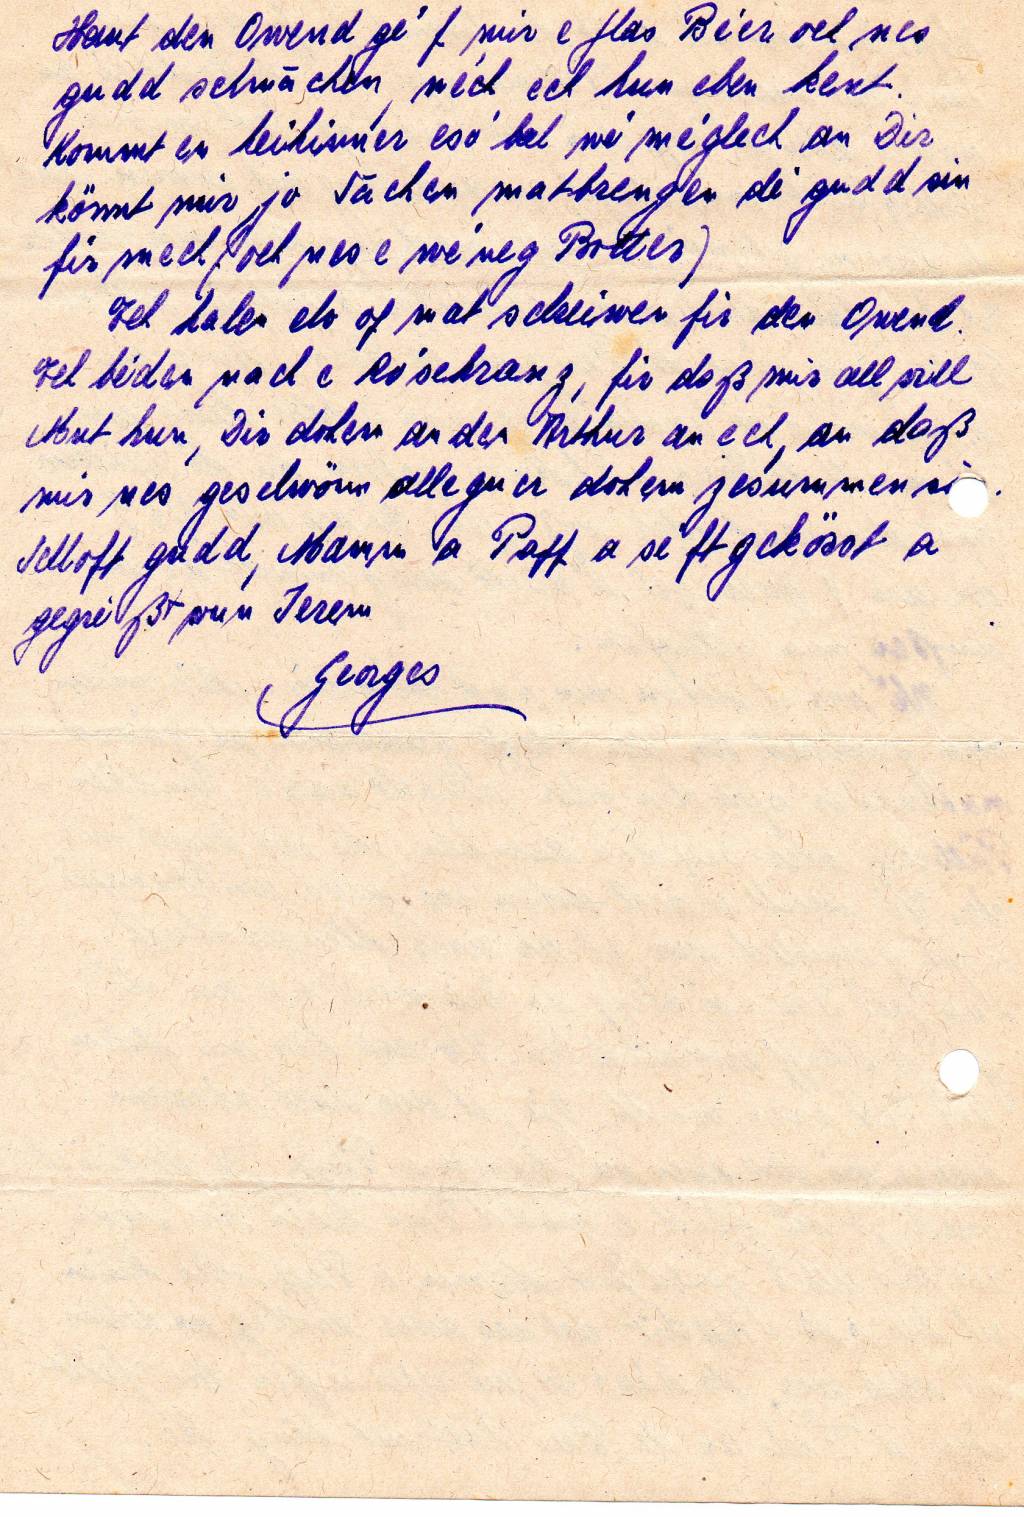 Haut den Owend gé'f mir e Glas Béier och nes
gudd schmâchen, méch ech hun eben kent.
Kommt en heihinner esó bal wé méglech an Dir
könnt mir jo Sâchen matbrengen dé gudd sin
fir mech (och nes e wéneg Botter)
Ech halen elo op mat schreiwen fir den Owend.
Ech bieden nach e Rósekranz, fir daß mir all vill
Mut hun, Dir dohem an den Arthur an ech, an daß
mir nes geschwönn alleguer dohem zesummen si .
Schloft gudd, Mamm a Papp a séft geköszt a
gegréißt vun Irem
Georges